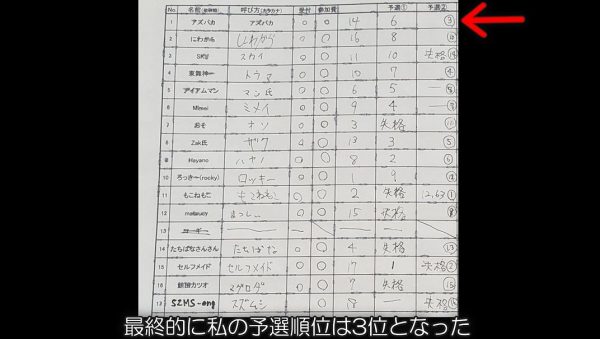 No. 名前(敬称略) 呼び方(カタカナ) 受付 参加費 予選① 予選②
1 アズパカ アズパカ ○ ○ 14 6 ③
2 にわから にわから ○ ○ 16 8
3 SKY スカイ ○ ○ 11 10 失格
4 東舞神一 トウマ ○ ○ 10 7 ④
5 アイアムマン マン氏 ○ ○ 6 5 —
6 Mimei ミメイ ○ ○ 9 4 —
7 おそ ナソ ○ ○ 3 失格
8 Zak氏 ザク ○ ○ 13 3
9 Hayano ハヤノ ○ ○ 8 2
10 ろっきー(rocky) ロッキー ○ ○ 1 9
11 もこねもこ もこねもこ ○ ○ 2 失格 12.63 ①
12 まっしぃ ○ ○ 15 失格
13 ヨーギー
14 たちばなさんさん たちばな ○ ○ 4 失格 ⑬
15 セルフメイド セルフメイド ○ ○ 17 1 失格 ②
16 飯田カツオ ○ ○ 7 失格
17 スズムシ ○ ○ 18 — 失格
最終的に私の予選順位は3位となった